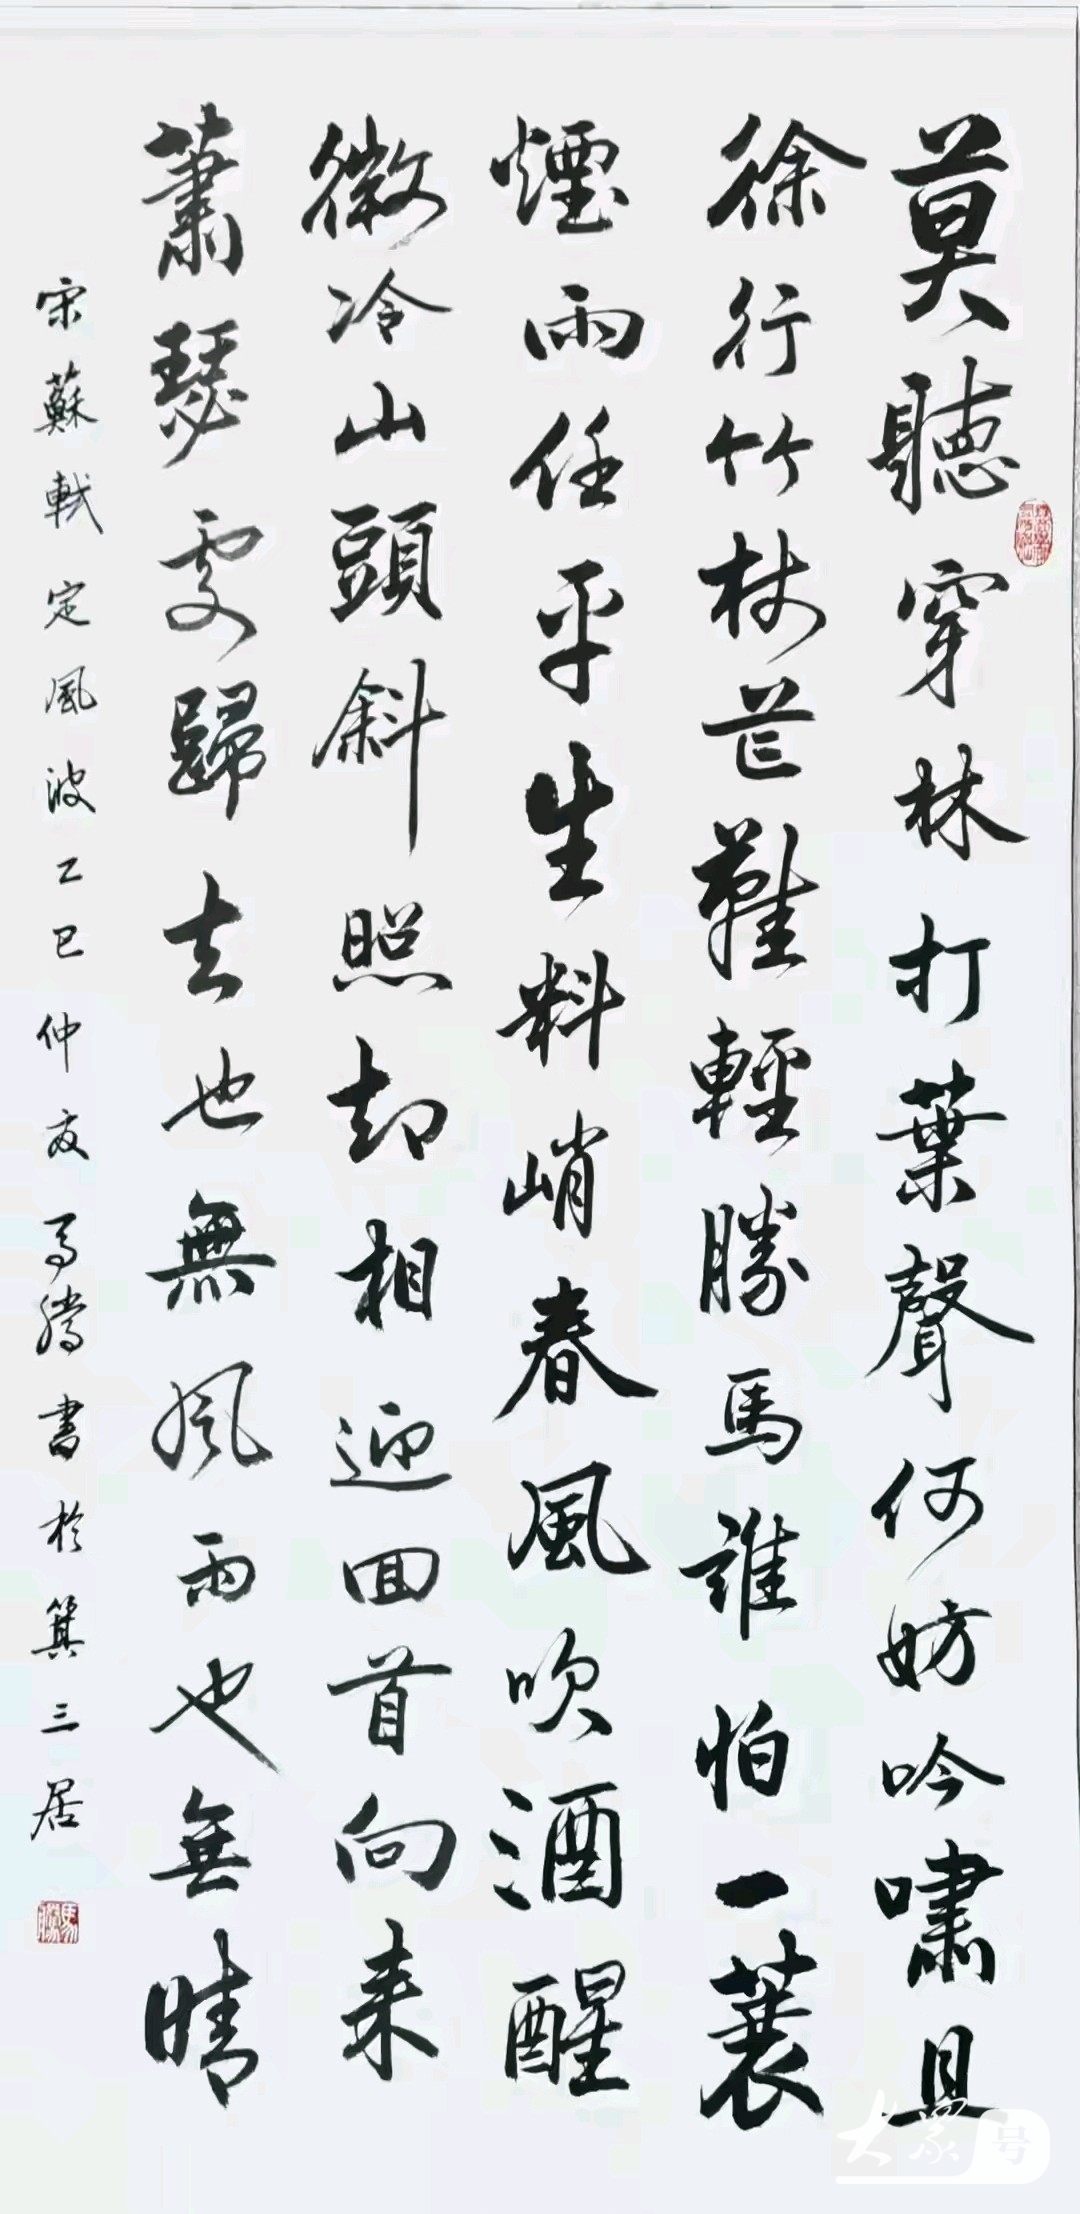 莫聽穿林打葉聲何妨吟嘯且
徐行竹杖芒鞋輕勝馬誰怕一蓑
煙雨任平生料峭春風吹酒醒
微冷山頭斜照却相迎回首向来
蕭瑟處歸去也無風雨也無晴
宋蘇軾定風波乙巳仲夏馬騰書於箕三居
馬騰
大眾号